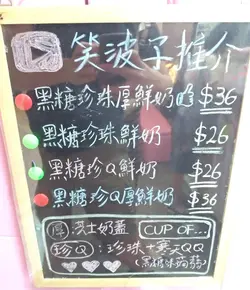 笑波子推介
黑糖珍珠厚鮮奶 $36
黑糖珍珠鮮奶 $26
黑糖珍Q鮮奶 $26
黑糖珍Q厚鮮奶 $36
厚:芝士奶蓋 CUP OF...
珍Q:珍珠+寒天QQ
(黑糖味蒟蒻)